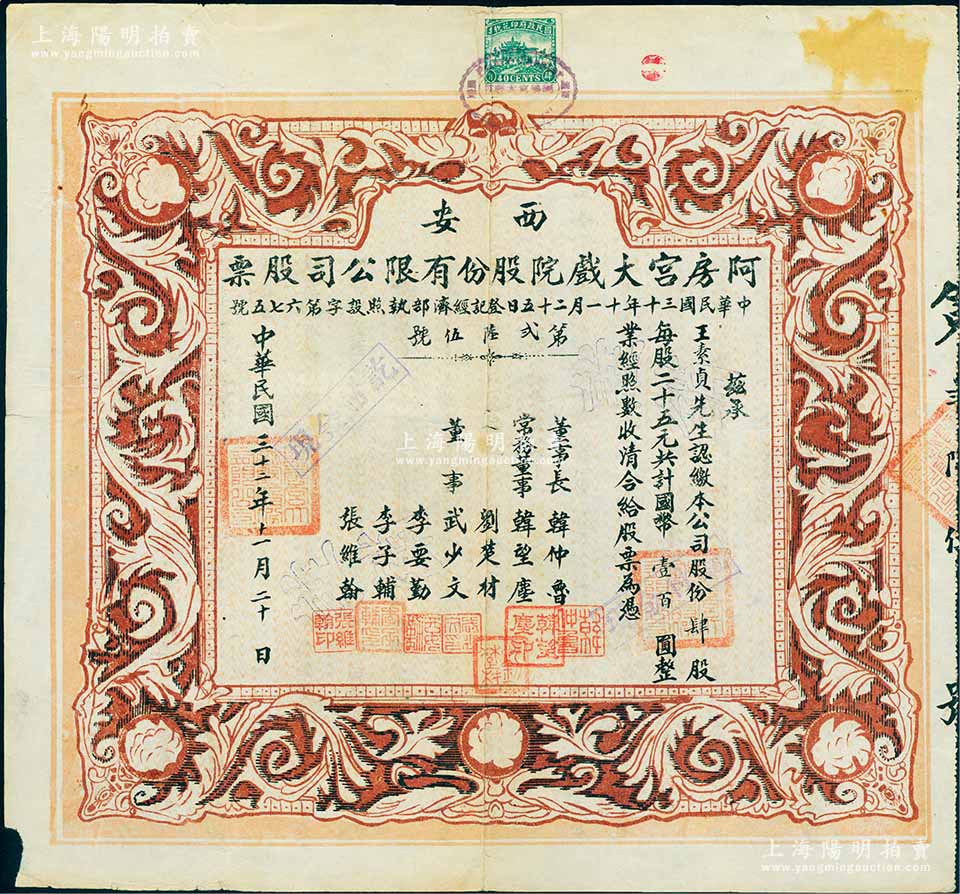 上海陽明拍賣
www.yangmingauction.com
國民政府印花税票
40CENTS
西安
阿房宮大戲院股份有限公司股票
中華民國三十年十一月二十五日登記經濟部執照設字第六七五號
第弍陸伍號
茲承
王素貞先生認繳本公司股份肆股
每股二十五元共計國幣壹百圓整
業經照數收清合給股票為憑
董事長 韓仲魯
常務董事 韓望塵
劉楚材
董事 武少文
李要勤
李子輔
張維翰
中華民國三十二年十一月二十日
張維翰印
韓望塵印
上海陽明拍賣
www.yangmingauction.com
號
上海陽明拍賣
www.yangmingauction.com